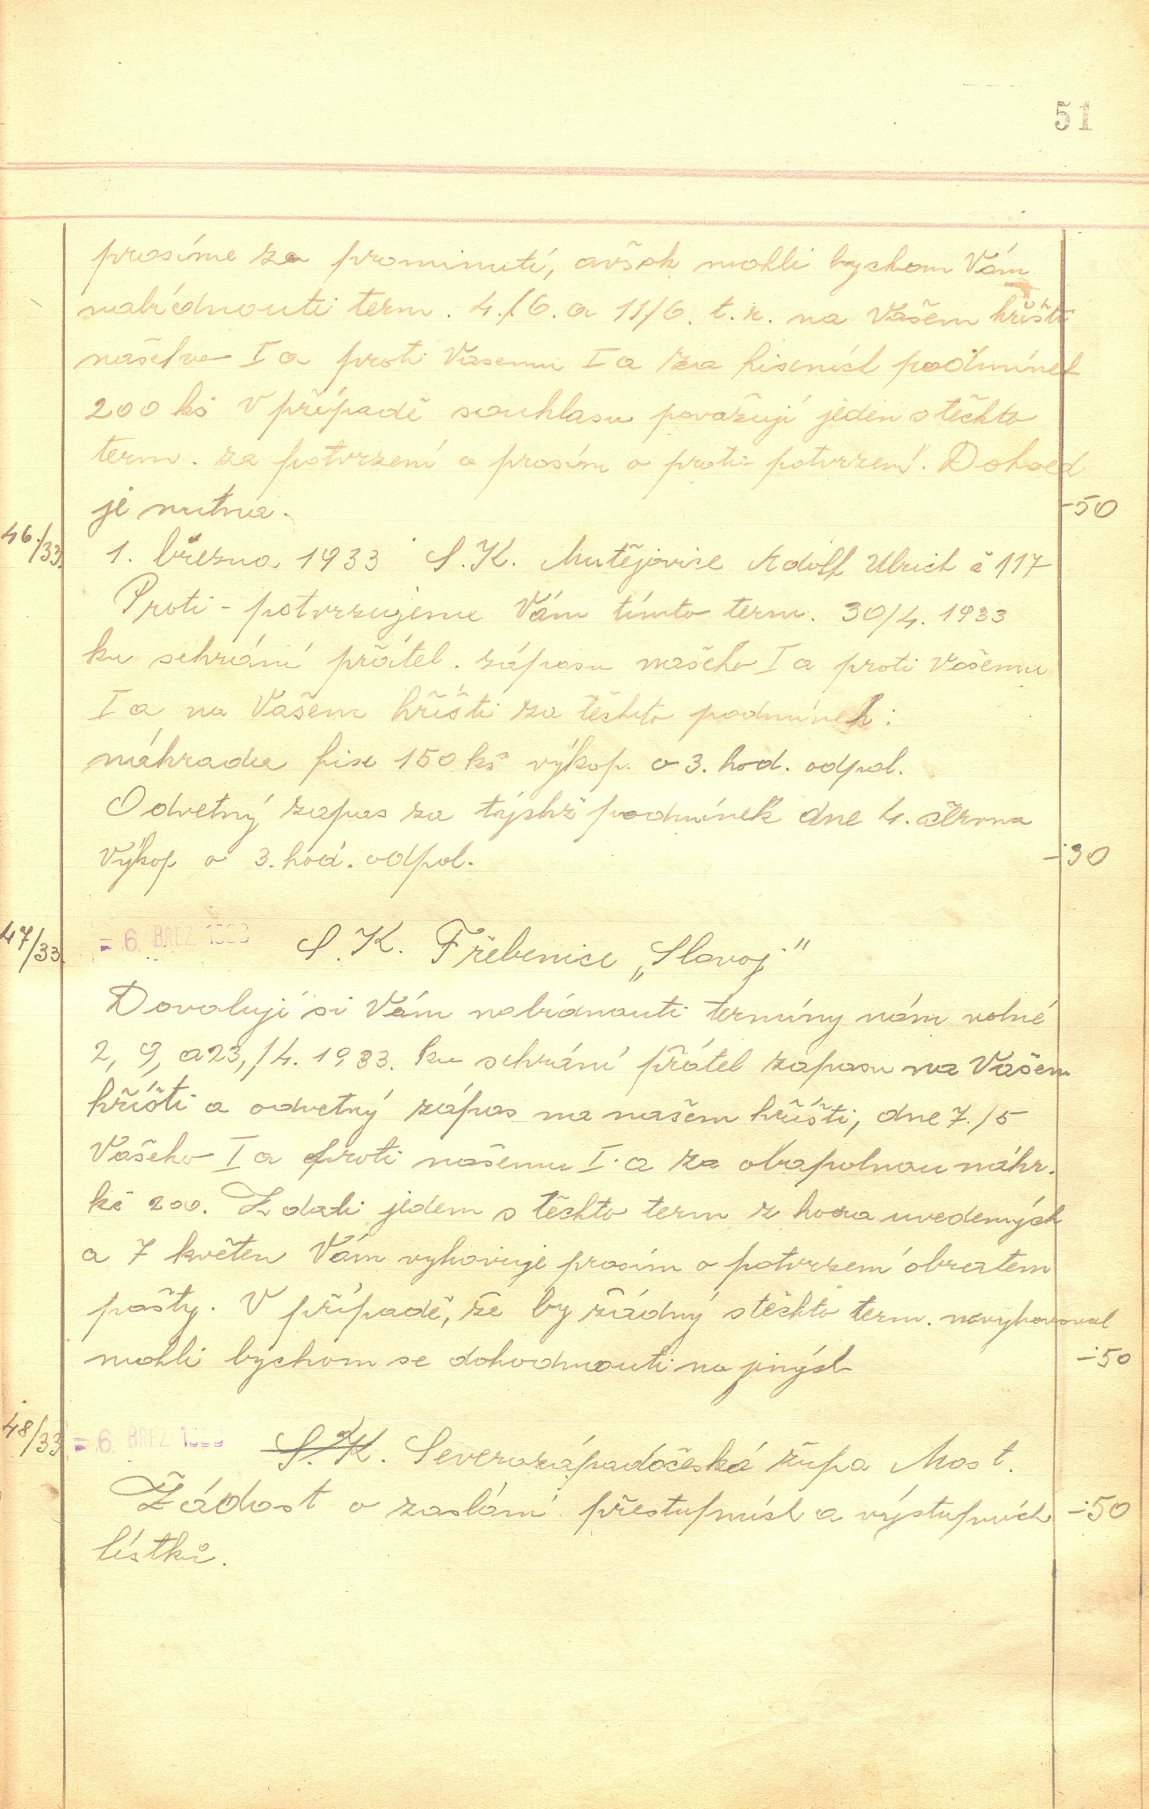 51
prosíme za prominutí, avšak mohli bychom Vám
nabídnouti term. 4./6. a 11/6. t.r. na Vašem hřišti
našeho Ia proti Vašemu Ia za fiseních podmínek
200 kč V případě souhlasu považuji jeden s těchto
term. za potvrzení a prosím o proti-potvrzení. Dohoda
je nutna. -50
46/33. 1. března 1933 S.K. Mutějovice Adolf Ulrich č 117
Proti-potvrzujeme Vám tímto term. 30/4. 1933
ku sehrání přátel. zápasu našeho Ia proti Vašemu
Ia na Vašem hřišti za těchto podmínek:
náhrada fix 150 kč výkop o 3. hod. odpol.
Odvetný zapas za týchž podmínek dne 4. června
Výkop o 3. hod. odpol. -30
47/33. = 6. BŘEZ. 1933 S.K. Třebenice „Slavoj"
Dovoluji si Vám nabídnouti termíny nám volné
2, 9, a 23,/4. 1933. ku sehrání přátel zapasu na Vašem
hřišti a odvetný zápas na našem hřišti, dne 7./5
Vašeho Ia proti našemu I.a za obapolnou náhr.
kč 200. Zdali jedem s těchto term z hora uvedených
a 7 květen Vám vyhovuje prosím o potvrzení obratem
pošty. V případě, že by žádný s těchto term. nevyhovoval
mohli bychom se dohodnouti na jiných -50
48/33 = 6. BŘEZ. 1933 S.K. Severozápadočeská župa Most.
Žádost o zaslání přestupních a výstupních -50
lístků.